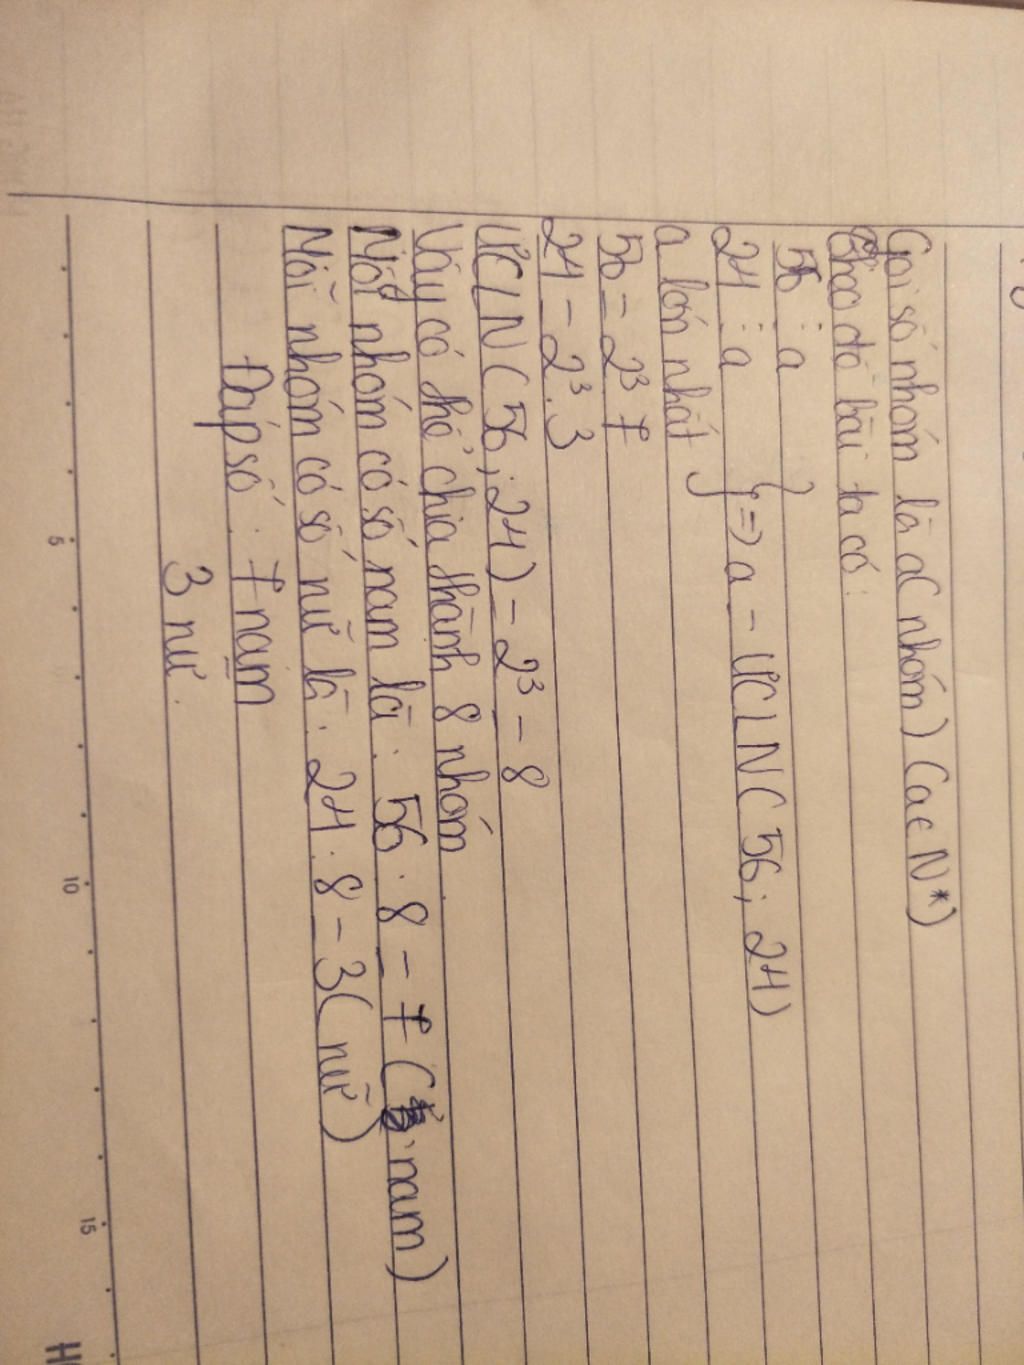 Gọi số nhóm là a( nhóm) (a∈ N*)
Theo đề bài ta có:
56 ⋮ a
24 ⋮ a } => a = ƯCLN( 56; 24)
a lớn nhất
56 = 2³.7
24 = 2³.3
ƯCLN( 56; 24) = 2³ = 8
Vậy có thể chia thành 8 nhóm
Mỗi nhóm có số nam là: 56 : 8 = 7 ( nam)
Mỗi nhóm có số nữ là: 24 : 8 = 3( nữ)
Đáp số : 7 nam
3 nữ.
5
10
15